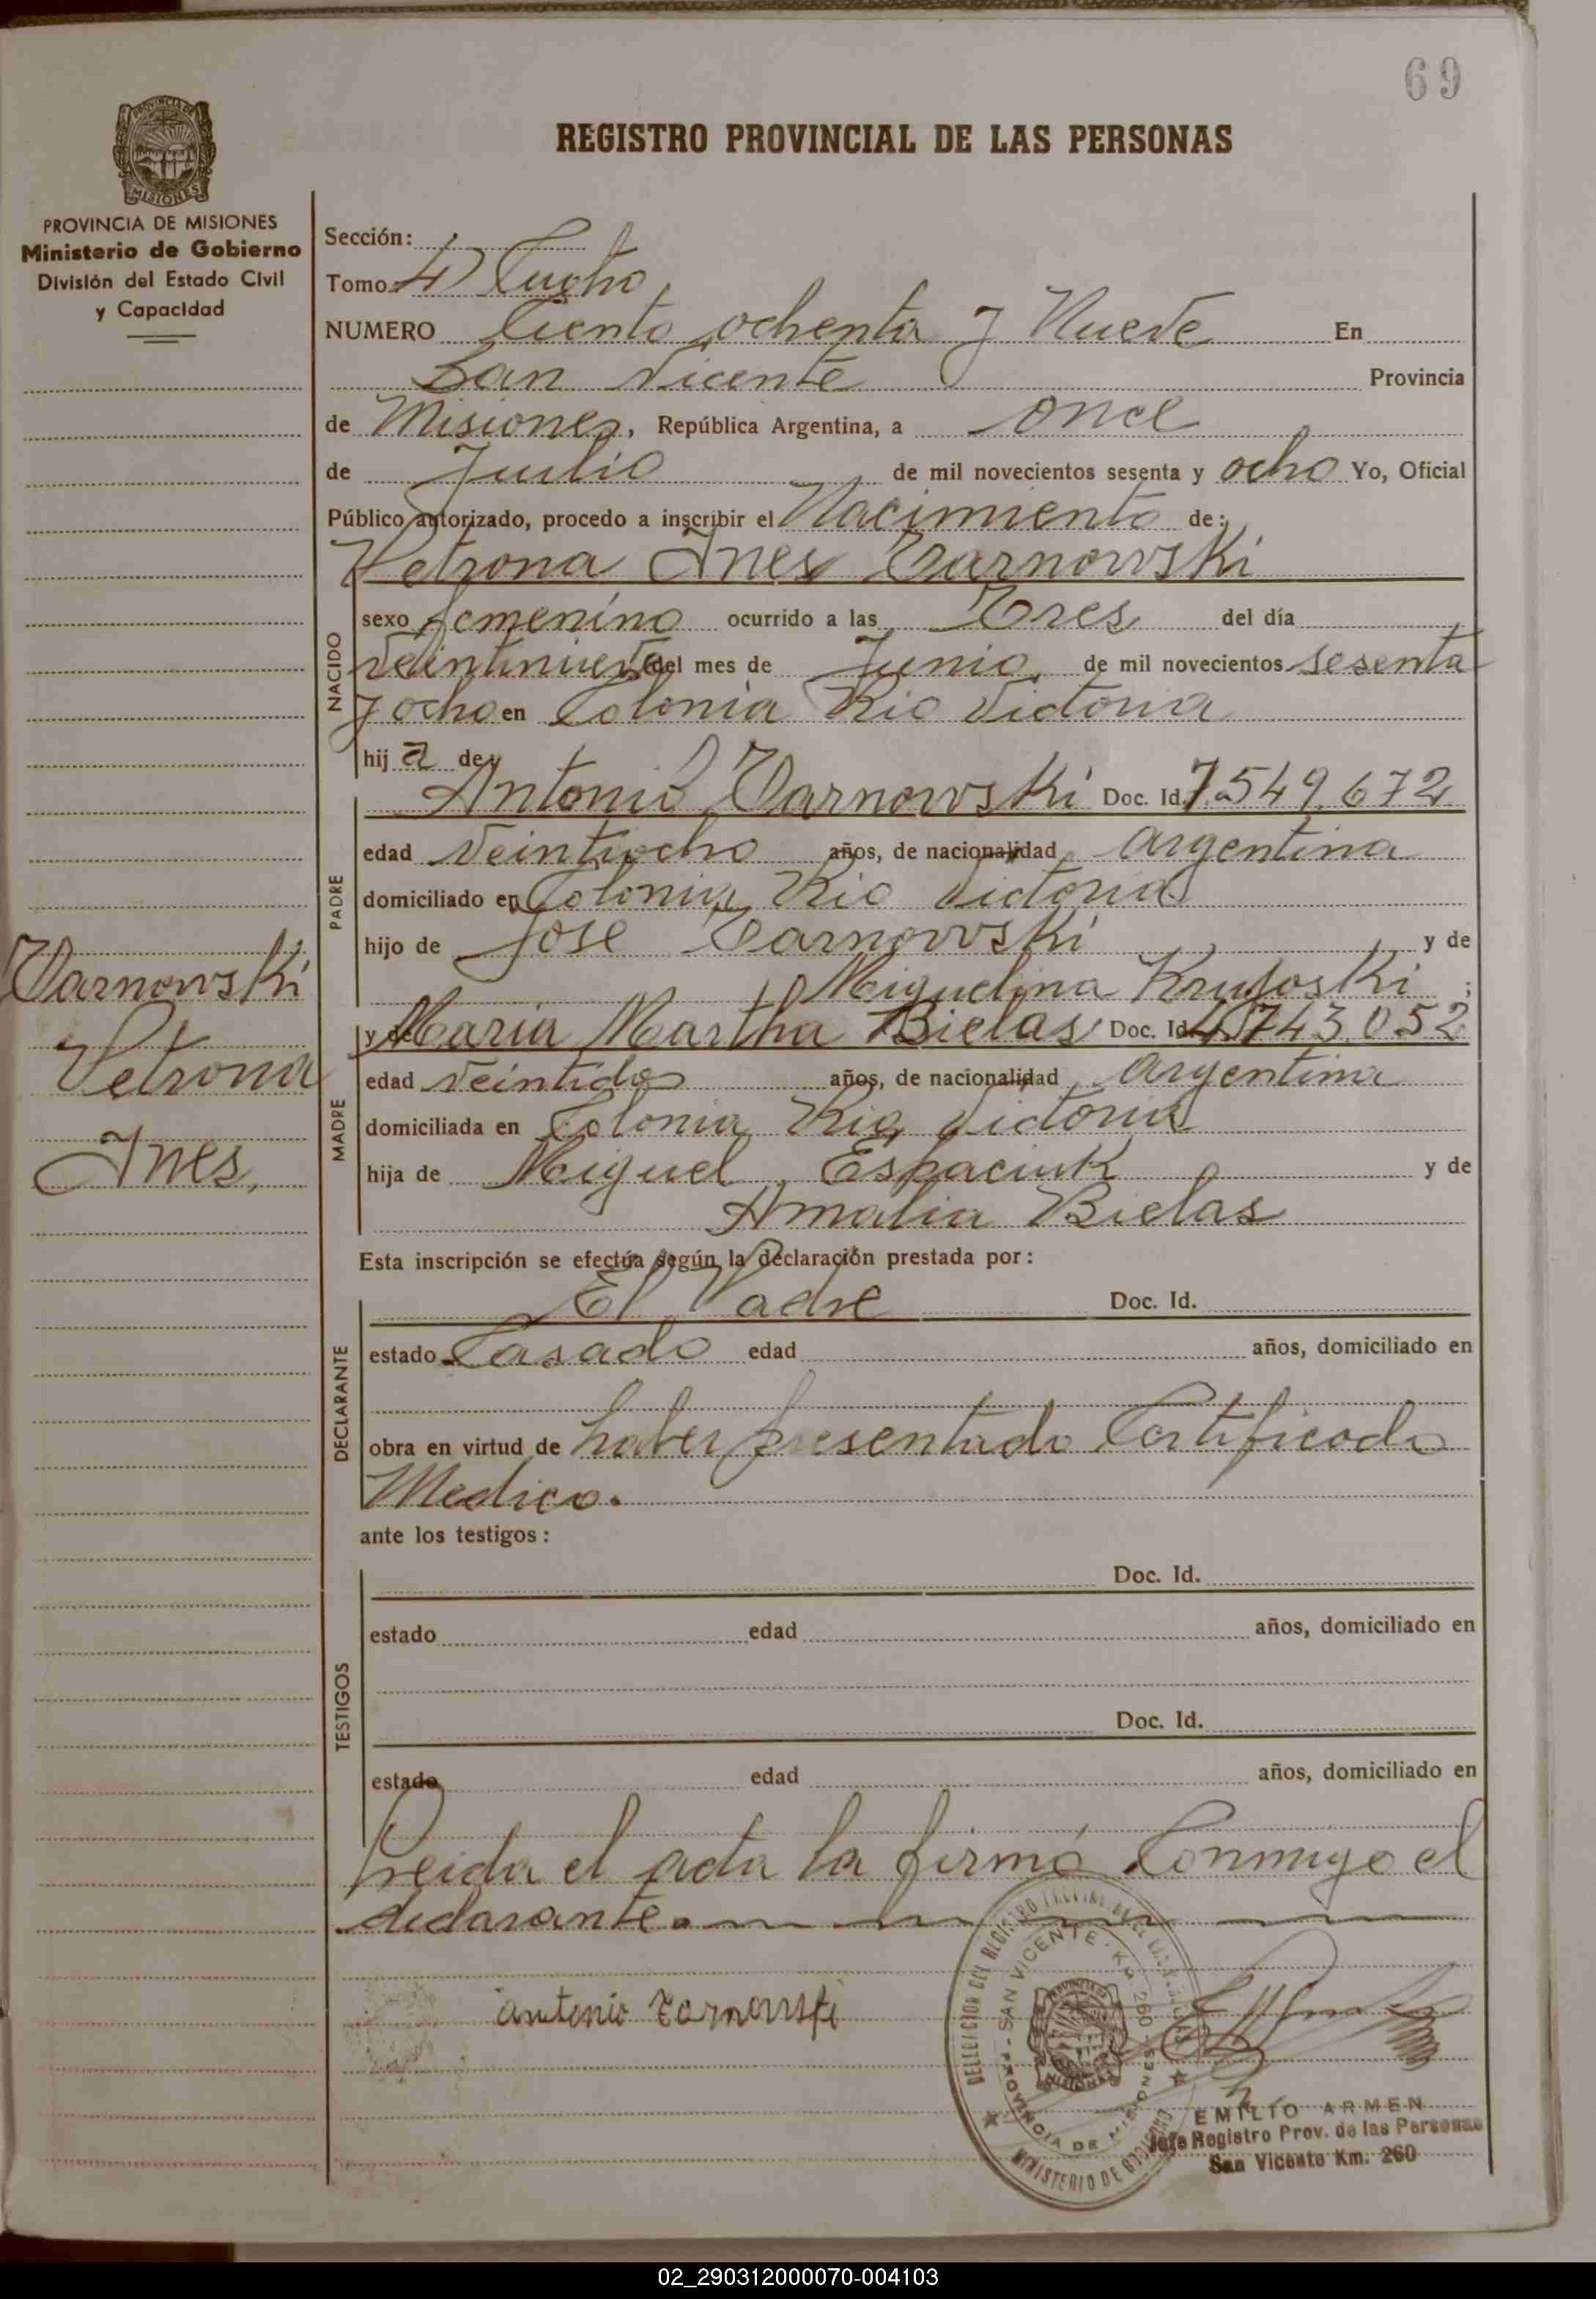 69
REGISTRO PROVINCIAL DE LAS PERSONAS
PROVINCIA DE MISIONES
Ministerio de Gobierno
División del Estado Civil
y Capacidad
Sección:
Tomo 4º Cuarto
NUMERO Ciento ochenta y Nueve En
San Vicente Provincia
de Misiones, República Argentina, a once
de Julio de mil novecientos sesenta y ocho Yo, Oficial
Público autorizado, procedo a inscribir el Nacimiento de:
Petrona Ines Tarnowski
NACIDO
sexo femenino ocurrido a las Tres del día
veintinueve del mes de Junio, de mil novecientos sesenta
y ocho en Colonia Rio Victoria
hija de
PADRE
Antonio Tarnowski Doc. Id. 7.549.672
edad Veintiocho años, de nacionalidad argentina
domiciliado en Colonia Rio Victoria
hijo de Jose Tarnowski y de
Miguelina ;
MADRE
y de Maria Martha Bielas Doc. Id. 743.052
edad veintidos años, de nacionalidad argentina
domiciliada en Colonia Rio Victoria
hija de Miguel y de
Amalia Bielas
Tarnowski
Petrona
Ines,
Esta inscripción se efectúa según la declaración prestada por:
DECLARANTE
El Padre Doc. Id.
estado Casado edad años, domiciliado en
obra en virtud de haber presentado Certificado
Medico.
ante los testigos:
TESTIGOS
Doc. Id.
estado edad años, domiciliado en
Doc. Id.
estado edad años, domiciliado en
Leida el acta la firmó Conmigo el
declarante.
antonio Tarnowski
SAN VICENTE - Km 260
PROVINCIA DE MISIONES
MINISTERIO DE GOBIERNO
EMILIO ARMEN
Jefe Registro Prov. de las Personas
San Vicente Km. 260
02_290312000070-004103